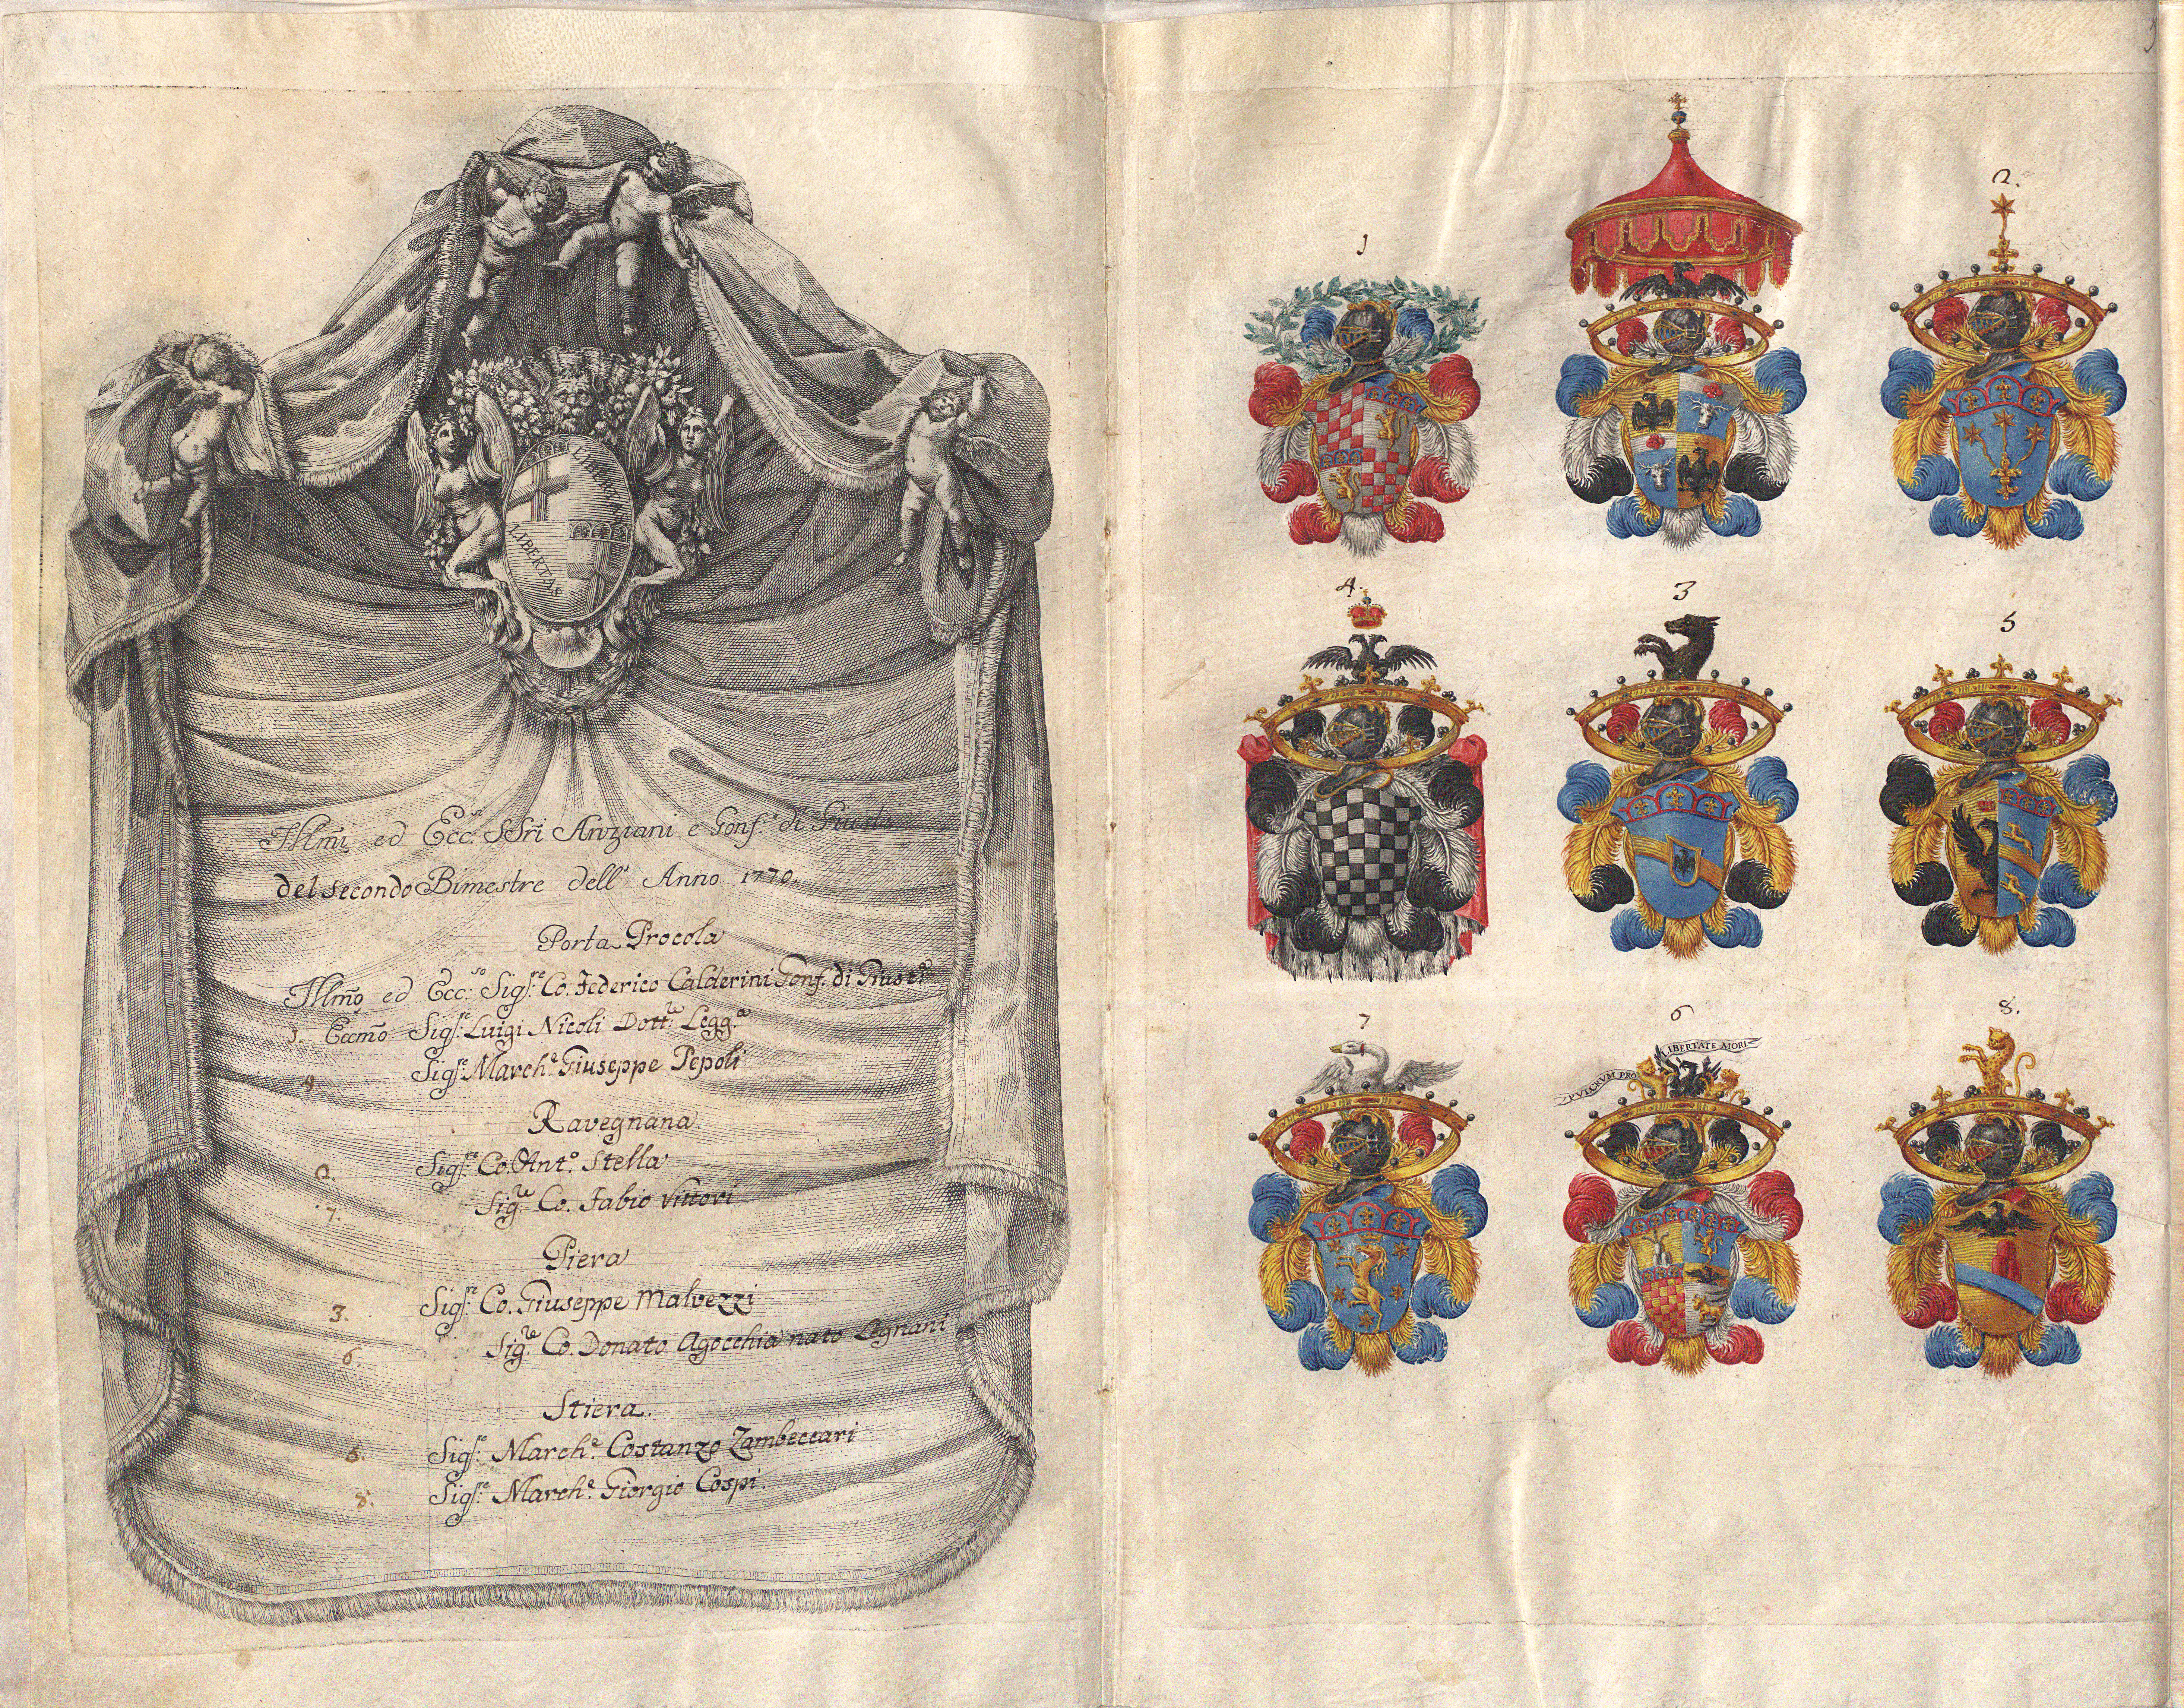 LIBERTAS
LIBERTAS
Illmi ed Ecc.si SSri Anziani e Gonf. di Giusta
del secondo Bimestre dell' Anno 1770
Porta Procola
Illmo ed Ecc:so Sigre: Co. Federico Calderini Gonf. di Giusta
1. Eccmo Sigre: Luigi Nicoli Dottre Legga
4 Sigre: Marche. Giuseppe Pepoli
Ravegnana
2. Sigre: Co. Anto. Stella
7. Sigre Co. Fabio Vittori
Piera
3. Sigre: Co. Giuseppe Malvezzi
6. Sigre Co. Donato Agocchia nato Legnani
Stiera.
Sigre: Marche. Costanzo Zambeccari
8. Sigre: Marche. Giorgio Cospi.
1
2.
4.
3
5
7
6
8.
PVLCRVM PRO
LIBERTATE MORI